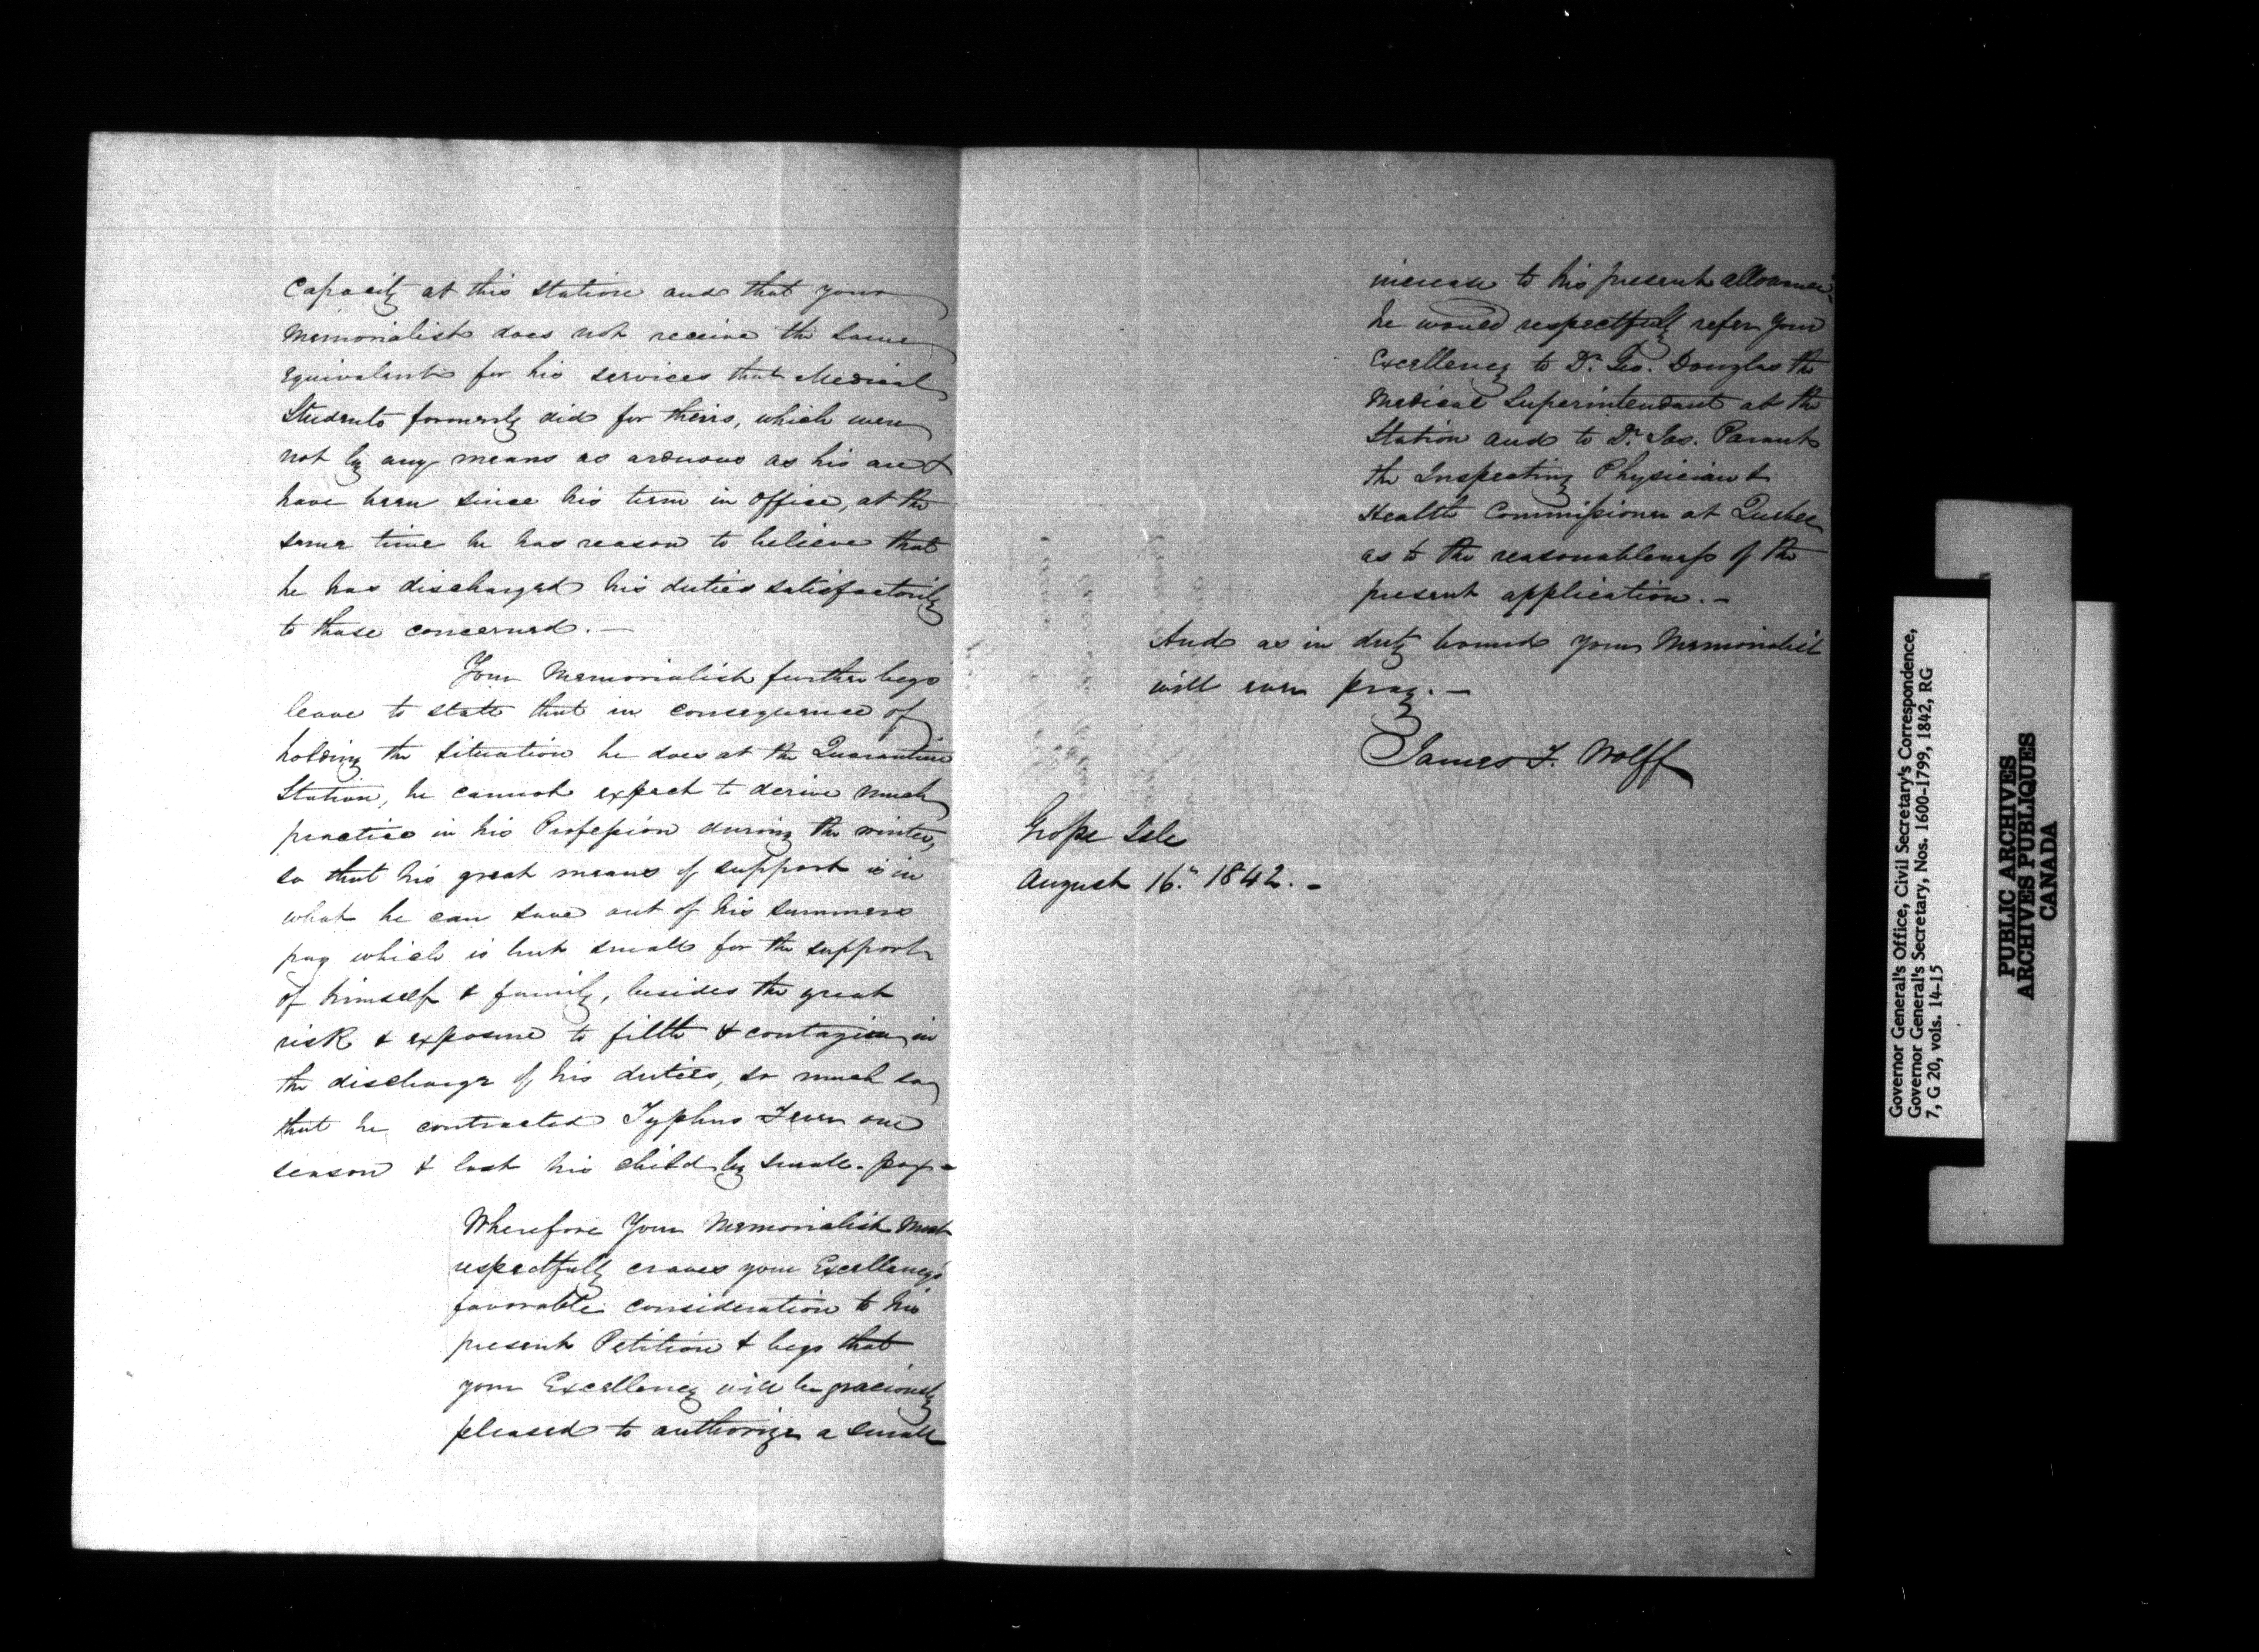 Capacity at this Station and that your
Memorialist does not receive the same
equivalent for his services that Medical
Students formerly did for theirs, which were
not by any means as arduous as his are &
have been since his term in office, at the
same time he has reason to believe that
he has discharged his duties satisfactorily
to those concerned. —
Your Memorialist further begs
leave to state that in consequence of
holding the situation he does at the Quarantine
Station, he cannot expect to derive much
practice in his Profession during the winter,
so that his great means of support is in
what he can save out of his summers
pay which is but small for the support
of himself & family, besides the great
risk & exposure to filth & contagion in
the discharge of his duties, so much so
that he contracted Typhus Fever one
season & lost his child by small-pox —
Wherefore Your Memorialist most
respectfully craves your Excellency's
favorable consideration to his
present Petition & begs that
your Excellency will be graciously
pleased to authorize a small
increase to his present allowance.
he would respectfully refer Your
Excellency to Dr. Geo. Douglas the
Medical Superintendant at the
Station and to Dr. Jos. Parant
the Inspecting Physician &
Health Commissioner at Quebec
as to the reasonableness of the
present application. —
And as in duty bound your Memorialist
will ever pray. —
James F. Wolff
Grosse Isle
August 16. 1842. —
Governor General's Office, Civil Secretary's Correspondence,
Governor General's Secretary, Nos. 1600-1799, 1842, RG
7, G 20, vols. 14-15
PUBLIC ARCHIVES
ARCHIVES PUBLIQUES
CANADA